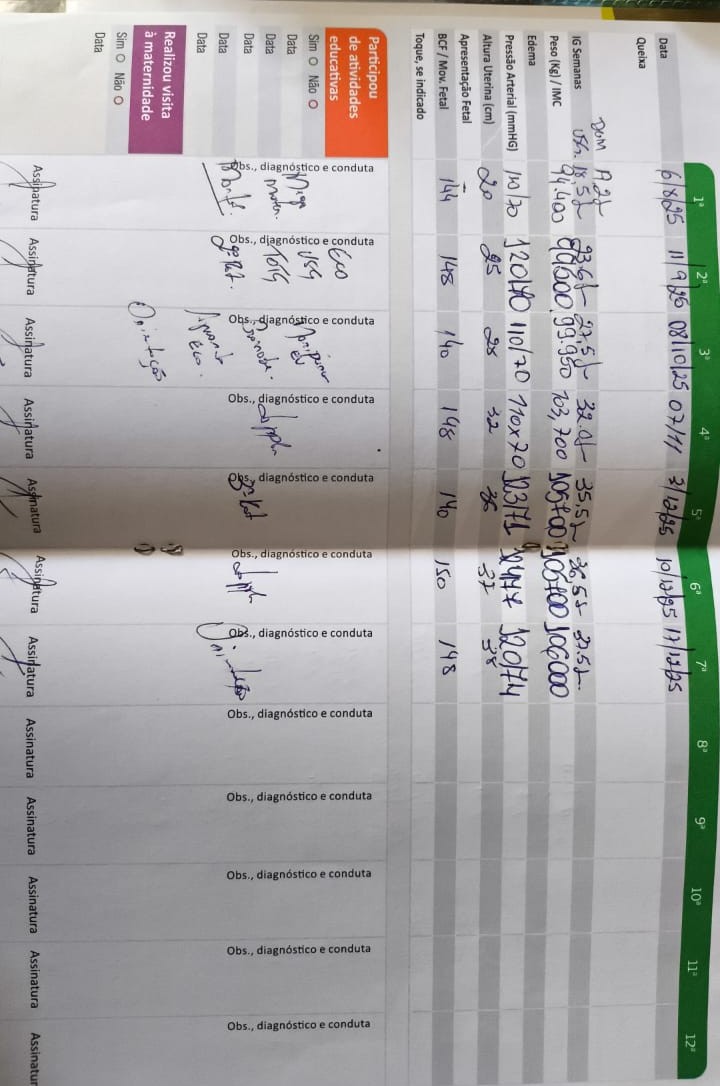 1ª 2ª 3ª 4ª 5ª 6ª 7ª 8ª 9ª 10ª 11ª 12ª
Data 6/8/25 11/9/25 08/10/25 07/11 3/12/25 10/12/25 17/12/25
Queixa
DUM
IG Semanas 18,5s 23,6s 27,5s 32.0s 35,5s 36,5s 37.5s
Peso (Kg) / IMC 94.400 99.950 103,700 105700 106000
Edema
Pressão Arterial (mmHG) 110/70 120/70 110/70 110x70 123/71 120/74
Altura Uterina (cm) 20 25 28 32 36 37 38
Apresentação Fetal -
BCF / Mov. Fetal 144 148 140 148 140 150 148
Toque, se indicado
Participou
de atividades
educativas
Sim Não
Data
Data
Data
Data
Data
Realizou visita
à maternidade
Sim Não
Data
Obs., diagnóstico e conduta
Obs., diagnóstico e conduta
Eco
USG
TOTG
Obs., diagnóstico e conduta
Aguardo
Eco.
Orientação
Obs., diagnóstico e conduta
Doppler
Obs., diagnóstico e conduta
Obs., diagnóstico e conduta
Doppler
Obs., diagnóstico e conduta
Orientação
Obs., diagnóstico e conduta
Obs., diagnóstico e conduta
Obs., diagnóstico e conduta
Obs., diagnóstico e conduta
Obs., diagnóstico e conduta
Assinatura Assinatura Assinatura Assinatura Assinatura Assinatura Assinatura Assinatura Assinatura Assinatura Assinatura Assinatur